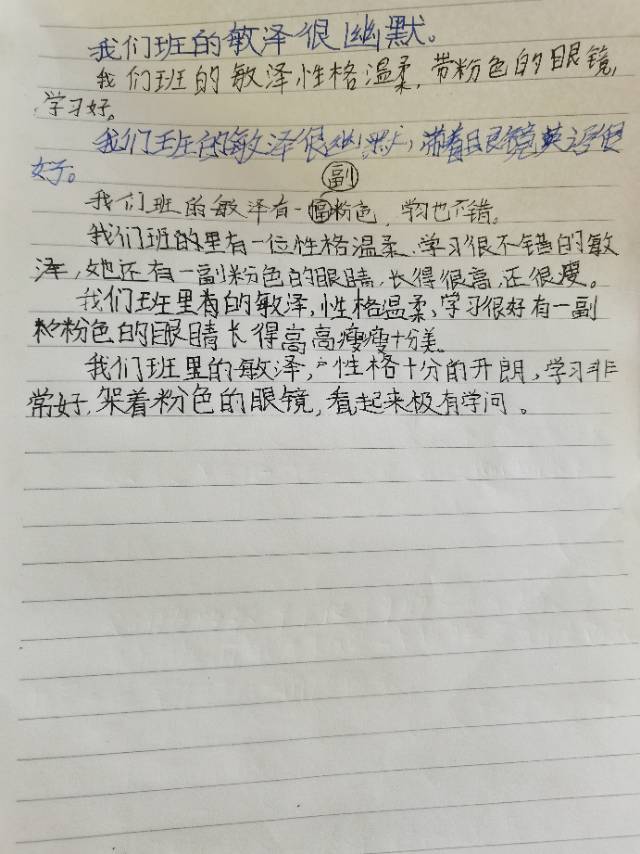 我们班的敏泽很幽默。
我们班的敏泽性格温柔,带粉色的眼镜,
学习好。
我们班的敏泽很幽默,带着眼镜英语很
好。
副
我们班的敏泽有一副粉色,学习也不错。
我们班的里有一位性格温柔,学习很不错的敏
泽,她还有一副粉色的眼睛,长得很高,还很瘦。
我们班里有的敏泽,性格温柔,学习很好有一副
粉色的眼睛长得高高瘦瘦十分美。
我们班里的敏泽,性格十分的开朗,学习非
常好,架着粉色的眼镜,看起来极有学问。